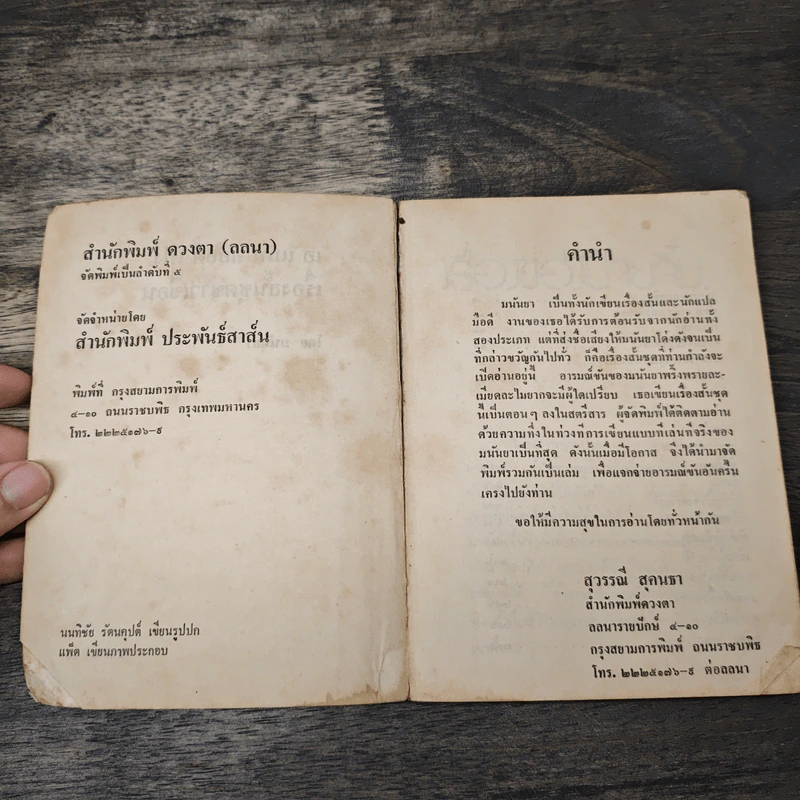 สำนักพิมพ์ ดวงตา (ลลนา)
จัดพิมพ์เป็นลำดับที่ ๕
จัดจำหน่ายโดย
สำนักพิมพ์ ประพันธ์สาส์น
พิมพ์ที่ กรุงสยามการพิมพ์
๔-๑๐ ถนนราชบพิธ กรุงเทพมหานคร
โทร. ๒๒๒๕๑๗๖-๙
นนทิชัย รัตนคุปต์ เขียนรูปปก
แพ็ต เขียนภาพประกอบ
คำนำ
มนันยา เป็นทั้งนักเขียนเรื่องสั้นและนักแปล
มือดี งานของเธอได้รับการต้อนรับจากนักอ่านทั้ง
สองประเภท แต่ที่ส่งชื่อเสียงให้มนันยาโด่งดังจนเป็น
ที่กล่าวขวัญกันไปทั่ว ก็คือเรื่องสั้นชุดที่ท่านกำลังจะ
เปิดอ่านอยู่นี้ อารมณ์ขันของมนันยาพริ้งพรายละ-
เมียดละไมยากจะมีผู้ใดเปรียบ เธอเขียนเรื่องสั้นชุด
นี้เป็นตอนๆ ลงในสตรีสาร ผู้จัดพิมพ์ได้ติดตามอ่าน
ด้วยความทึ่งในท่วงทีการเขียนแบบทีเล่นทีจริงของ
มนันยาเป็นที่สุด ดังนั้นเมื่อมีโอกาส จึงได้นำมาจัด
พิมพ์รวมกันเป็นเล่ม เพื่อแจกจ่ายอารมณ์ขันอันครื้น
เครงไปยังท่าน
ขอให้มีความสุขในการอ่านโดยทั่วหน้ากัน
สุวรรณี สุคนธา
สำนักพิมพ์ดวงตา
ลลนารายปักษ์ ๔-๑๐
กรุงสยามการพิมพ์ ถนนราชบพิธ
โทร. ๒๒๒๕๑๗๖-๙ ต่อลลนา